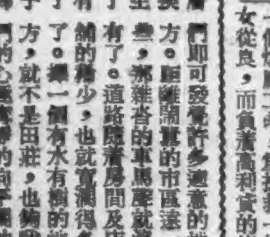 女從良，而負着高利貸的
們即可發覺許多適意的
方。距離鬧囂的市區遠
些，那雜沓的車馬聲就
有了。道路隨着房間及店
舖的稀少，也就寬濶得
了。擇一個有水有樹的地
方，就不是田莊，也夠